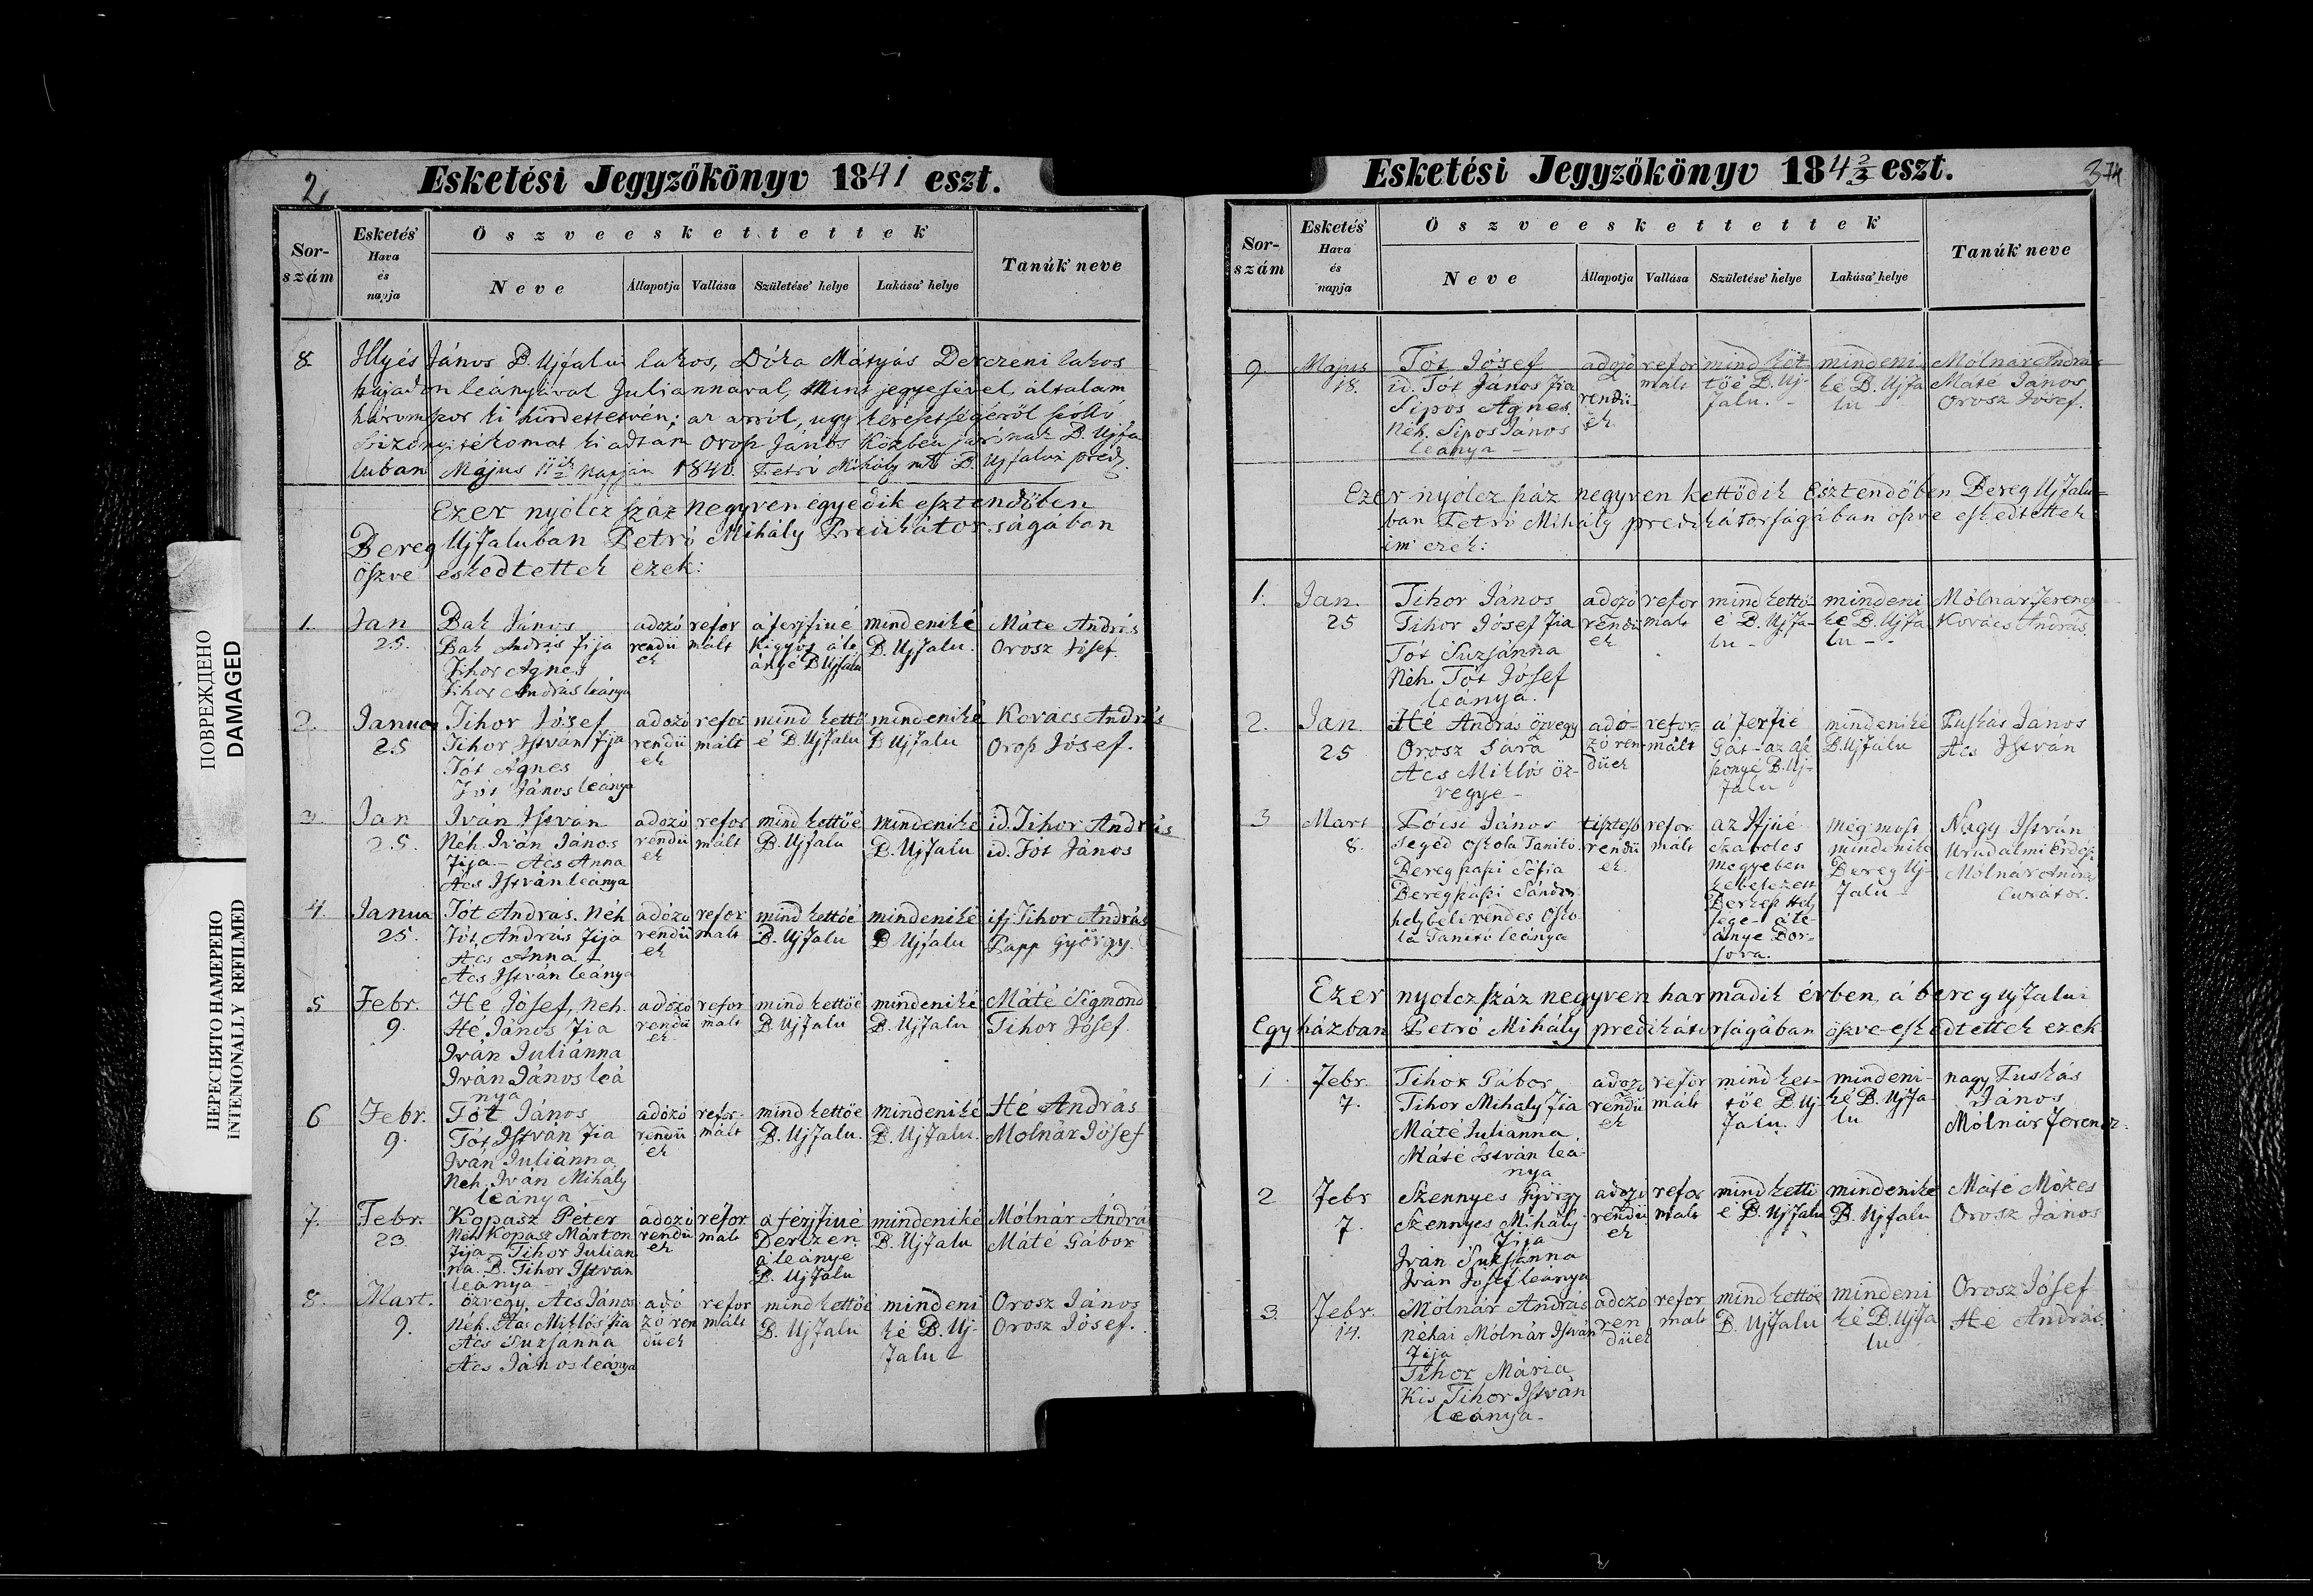 2,
Esketési Jegyzőkönyv 1841 eszt.
Sor-szám
Esketés' Hava és napja
Öszveeskettettek
Neve
Állapotja
Vallása
Születése' helye
Lakása' helye
Tanúk' neve
8. Illyés János B. Ujfalui lakos, Dóka Mátyás Derczeni lakos
hajadon leányával Juliannával, Mint jegyesével általam
háromszor ki hirdettetvén; az arról, ugy
ki adtam Orosz János B. Ujfa
luban Május 11ik Napján 1840. Petró Mihály B. Ujfalui préd.
Ezer nyólcz száz Negyven egyedik esztendőben
Bereg Ujfaluban Petró Mihály Prédikátor ságában
öszve eskedtettek ezek:
1. Jan 25. Bak János
Bak András fija
Tihor Agnes
Tihor András leánya
adozó rendü ek
refor mált
a férjfiué Kigyós á le ányé B Ujfalu
mindeniké B. Ujfalu.
Máte András
Orosz Jósef
2. Janua 25 Tihor József
Tihor István fija
Tót Agnes
Tót János leánya
adozó rendü ek
refor mált
mind kettő é B Ujfalu
mindeniké B Ujfalu
Kovács András
Orosz Jósef.
3. Jan 25. Iván István
Néh. Iván János
fija - Acs Anna
Acs István leánya
adozó rendü ek
refor mált
mind kettőé B. Ujfalu
mindeniké B. Ujfalu
id. Tihor András
id. Tót János
4. Janua 25. Tót András. Néh
Tót András fija
Acs Anna -
Acs István leánya
adózó rendü ek
refor malt
mind kettőé B. Ujfalu
mindeniké B Ujfalu
ifj Tihor András
Papp György.
5 Febr. 9. Hé Jósef, neh.
Hé János fia
Iván Juliánna
Iván János leá
nya
adózó rendü ek
refor malt
mind kettőé B Ujfalu
mindeniké B. Ujfalu
Máté Sigmond
Tihor Jósef.
6 Febr. 9. Tót János
Tót István fia
Iván Juliánna
Neh. Iván Mihály
leánya -
adózó rendü ek
refor- mált
mind kettőe B. Ujfalu.
mindeniké B. Ujfalu.
Hé András
Molnár Jósef
7. Febr. 23 Kopasz Péter
Néh Kopasz Márton
fija - Tihor Julian
na. B. Tihor István
leánya -
adozó rendü ek
refor mált
a férjfiué Derczen á leánye B. Ujfalu
mindeniké B. Ujfalu
Mólnár Andrá
Máté Gábor
8. Mart. 9. özvegy. Acs János
Néh. Acs Miklós fia
Acs Suzsánna
Acs János leánya
adó zó ren düek
refor mált
mind kettőé B. Ujfalu
mindeni ké B. Uj- falu -
Orosz János
Orosz Jósef.
ПОВРЕЖДЕНО
DAMAGED
ПЕРЕСНЯТО НАМЕРЕНО
INTENIONALLY REFILMED
Esketési Jegyzőkönyv 184 2/3 eszt.
374
Sor-szám
Esketés' Hava és napja
Öszveeskettettek
Neve
Állapotja
Vallása
Születése' helye
Lakása' helye
Tanúk' neve
9. Majus 18. Tót Jósef
id. Tót János fia
Sipos Agnes.
Néh. Sipos János
leánya -
adozó rendü ek
refor malt
mind két tőé B. Uj- falu. -
mindeni ké B. Ujfa lu -
Molnár András
Máte János
Orosz Jósef.
Ezer nyólcz száz negyven kettődik Esztendőben Bereg Ujfalu-
ban Petró Mihály predikátorságában öszve eskedtettek
im' ezek:
1. Jan. 25 Tihor János
Tihor Jósef fia
Tót Suzsánna
Néh. Tót Jósef
leánya.
adozó rendü ek
refor malt
mind kettő- é B. Ujfa- lu -
mindeni ké B. Ujfa lu - -
Mólnár Ferencz
Kovács András.
2. Jan. 25 Hé András özvegy
Orosz Sára
Acs Miklós öz-
vegye -
adó- zó ren- düek
refor- mált
a' ferfié Gát - az asz szonyé B. Uj- falu
mindeniké B. Ujfalu
Puskás János
Acs István
3 Mart 8. Pócsi János
Segéd oskola Tanitó.
Bereg szaszi Sófia
Beregszaszi Sándor
helybeli rendes Osko
la Tanitó leánya
tisztess rendü ek
refor mált
az Ifjué szabolcs megyeben kebelezett á le- ánye
még most mindeniké Bereg Uj- falu -
Nagy István
Uradalmi
Molnár András
Curátor.
Ezer nyolcz száz negyven harmadik évben, á bereg ujfalui
Egyházban Petró Mihály predikátorságában öszve-eskedtettek ezek
1 Febr. 7. Tihor Gábor
Tihor Mihaly fia
Máté Julianna.
Máté István leá-
nya
adozó rendü ek
refor mált
mind ket- tőe B. Uj falu.
mindeni- ké B. Ujfa- lu
nagy Puskás
János
Mólnár Ferencz.
2 Febr 7. Szennyes György
Szennyes Mihály
fija -
Iván Suksánna
Iván Jósef leánya
adozó rendü ek
refor malt
mind kettő e B. Ujfalu
mindenike B. Ujfalu
Máté Mózes
Orosz János
3. Febr. 14. Mólnár András
néhai Mólnár István
fija
Tihor Mária
Kis Tihor István
leánya -
adozó ren düek
refor malt
mind kettőe B. Ujfalu
mindeni ké B. Ujfa lu
Orosz Jósef
Hé András.